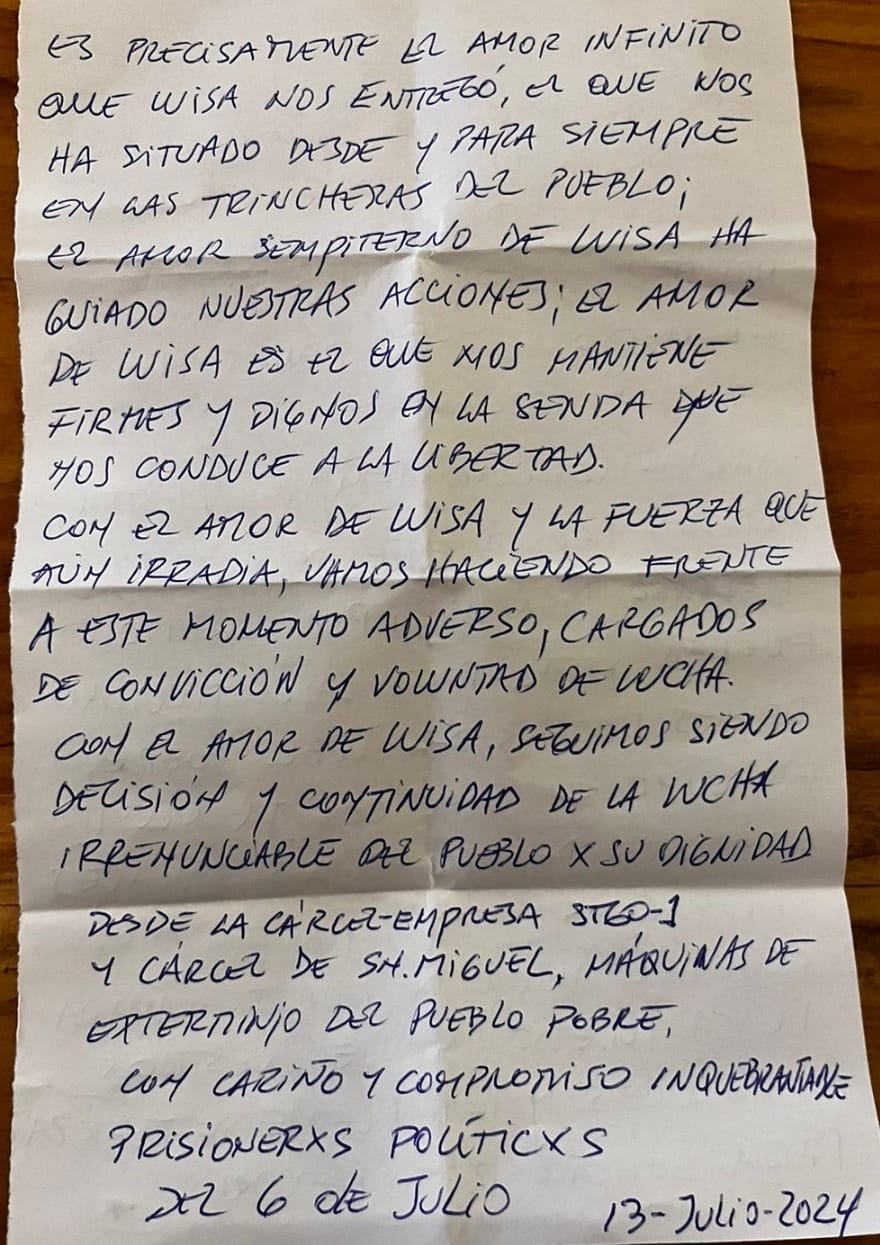 ES PRECISAMENTE EL AMOR INFINITO
QUE LUISA NOS ENTREGÓ, EL QUE NOS
HA SITUADO DESDE Y PARA SIEMPRE
EN LAS TRINCHERAS DEL PUEBLO;
EL AMOR SEMPITERNO DE LUISA HA
GUIADO NUESTRAS ACCIONES; EL AMOR
DE LUISA ES EL QUE NOS MANTIENE
FIRMES Y DIGNOS EN LA SENDA QUE
NOS CONDUCE A LA LIBERTAD.
CON EL AMOR DE LUISA Y LA FUERZA QUE
AÚN IRRADIA, VAMOS HACIENDO FRENTE
A ESTE MOMENTO ADVERSO, CARGADOS
DE CONVICCIÓN Y VOLUNTAD DE LUCHA.
CON EL AMOR DE LUISA, SEGUIMOS SIENDO
DECISIÓN Y CONTINUIDAD DE LA LUCHA
IRRENUNCIABLE DEL PUEBLO X SU DIGNIDAD
DESDE LA CÁRCEL-EMPRESA STGO-1
Y CÁRCEL DE SN. MIGUEL, MÁQUINAS DE
EXTERMINIO DEL PUEBLO POBRE,
CON CARIÑO Y COMPROMISO INQUEBRANTABLE
PRISIONERXS POLÍTICXS
DEL 6 de JULIO
13-JULIO-2024